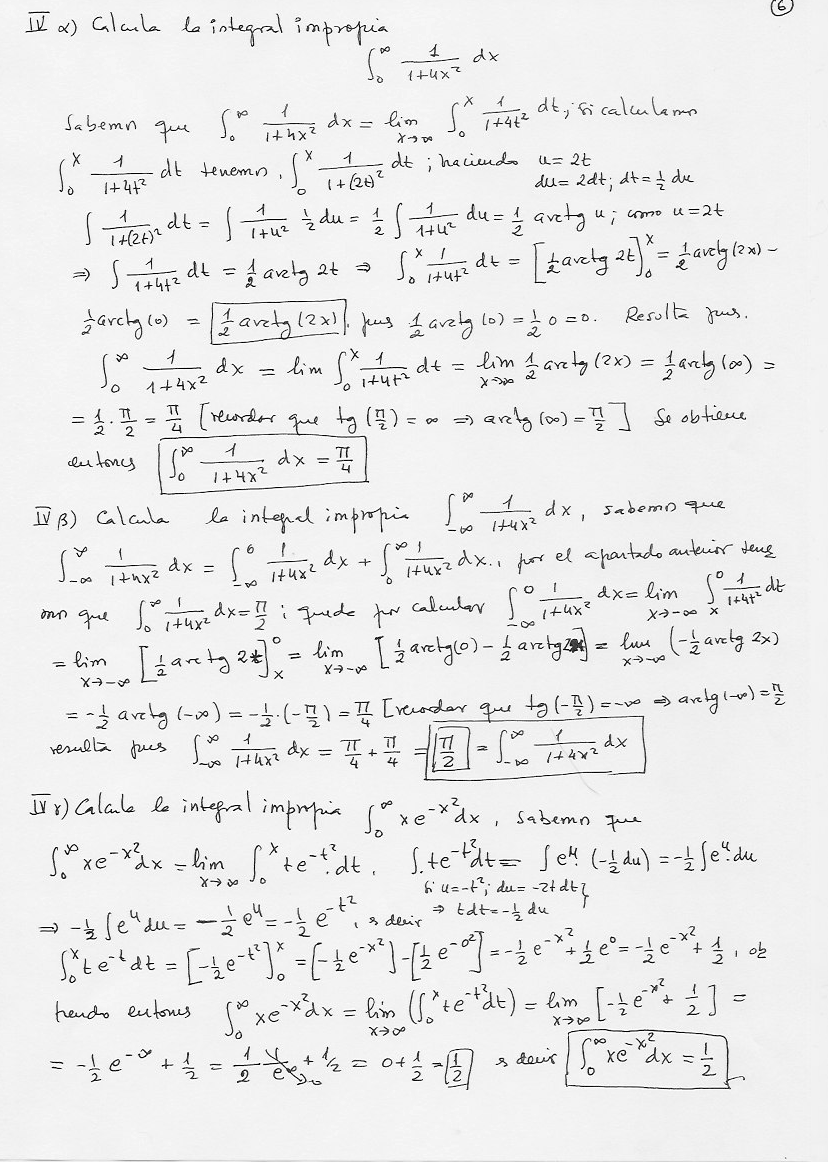 ⑥
IV α) Calcula la integral impropia
∫₀^∞ 1/(1+4x²) dx
Sabemos que ∫₀^∞ 1/(1+4x²) dx = lim_{x→∞} ∫₀^x 1/(1+4t²) dt, si calculamos
∫₀^x 1/(1+4t²) dt tenemos, ∫₀^x 1/(1+(2t)²) dt ; haciendo u=2t
du=2dt; dt=½ du
∫ 1/(1+(2t)²) dt = ∫ 1/(1+u²) ½ du = ½ ∫ 1/(1+u²) du = ½ arctg u; como u=2t
⇒ ∫ 1/(1+4t²) dt = ½ arctg 2t ⇒ ∫₀^x 1/(1+4t²) dt = [½ arctg 2t]₀^x = ½ arctg(2x) -
½ arctg(0) = ½ arctg(2x), pues ½ arctg(0) = ½ 0 = 0. Resulta pues.
∫₀^∞ 1/(1+4x²) dx = lim ∫₀^x 1/(1+4t²) dt = lim_{x→∞} ½ arctg(2x) = ½ arctg(∞) =
= ½ · π/2 = π/4 [recordar que tg(π/2) = ∞ ⇒ arctg(∞) = π/2] Se obtiene
entonces ∫₀^∞ 1/(1+4x²) dx = π/4
IV β) Calcula la integral impropia ∫_{-∞}^∞ 1/(1+4x²) dx, sabemos que
∫_{-∞}^∞ 1/(1+4x²) dx = ∫_{-∞}^0 1/(1+4x²) dx + ∫₀^∞ 1/(1+4x²) dx., por el apartado anterior tene
mos que ∫₀^∞ 1/(1+4x²) dx = π/2 ; queda por calcular ∫_{-∞}^0 1/(1+4x²) dx = lim_{x→-∞} ∫_x^0 1/(1+4t²) dt
= lim_{x→-∞} [½ arctg 2t]_x^0 = lim_{x→-∞} [½ arctg(0) - ½ arctg 2x] = lim_{x→-∞} (-½ arctg 2x)
= -½ arctg(-∞) = -½ · (-π/2) = π/4 [recordar que tg(-π/2) = -∞ ⇒ arctg(-∞) = π/2
resulta pues ∫_{-∞}^∞ 1/(1+4x²) dx = π/4 + π/4 = π/2 = ∫_{-∞}^∞ 1/(1+4x²) dx
IV γ) Calcula la integral impropia ∫₀^∞ xe^{-x²} dx, sabemos que
∫₀^∞ xe^{-x²} dx = lim_{x→∞} ∫₀^x te^{-t²} dt. ∫ te^{-t²} dt = ∫ e^u · (-½ du) = -½ ∫ e^u du
si u=-t²; du=-2t dt}
⇒ t dt = -½ du
⇒ -½ ∫ e^u du = -½ e^u = -½ e^{-t²}, es decir
∫₀^x te^{-t} dt = [-½ e^{-t²}]₀^x = [-½ e^{-x²}] - [½ e^{-0²}] = -½ e^{-x²} + ½ e⁰ = -½ e^{-x²} + ½, ob
tiendo entonces ∫₀^∞ xe^{-x²} dx = lim_{x→∞} (∫₀^x te^{-t²} dt) = lim_{x→∞} [-½ e^{-x²} + ½] =
= -½ e^{-∞} + ½ = ½ 1/e^∞ + 1/2 = 0 + ½ = ½ es decir ∫₀^∞ xe^{-x²} dx = ½